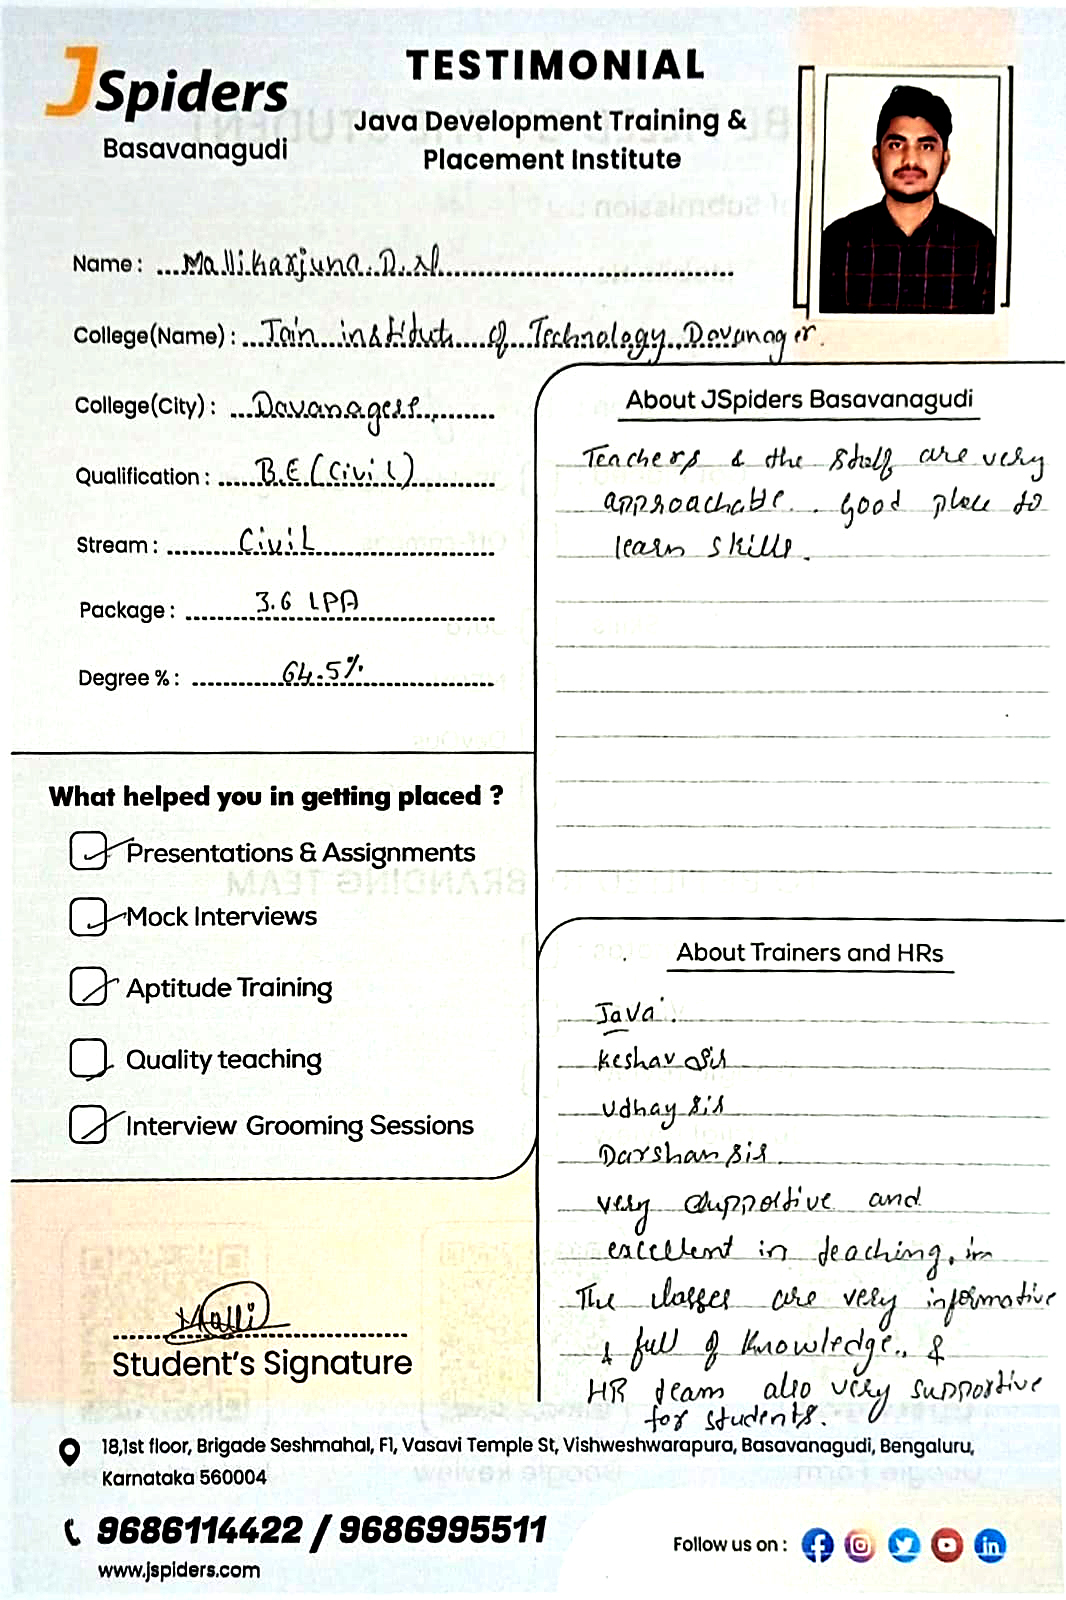 JSpiders
Basavanagudi
TESTIMONIAL
Java Development Training &
Placement Institute
Name : Mallikarjuna.D.N
College(Name) : Jain institute of Technology Davanager.
College(City) : Davanagere
Qualification : B.E (Civil)
Stream : Civil
Package : 3.6 LPA
Degree % : 64.5%
About JSpiders Basavanagudi
Teachers & the staff are very
approachable. Good place to
learn skills.
What helped you in getting placed ?
Presentations & Assignments
Mock Interviews
Aptitude Training
Quality teaching
Interview Grooming Sessions
About Trainers and HRs
Java.
Keshav Sir
Udhay Sir
Darshan Sir
very supportive and
excellent in teaching. in
The classes are very informative
& full of knowledge., &
HR team also very supportive
for students.
Malli
Student's Signature
18,1st floor, Brigade Seshmahal, F1, Vasavi Temple St, Vishweshwarapura, Basavanagudi, Bengaluru,
Karnataka 560004
9686114422 / 9686995511
www.jspiders.com
Follow us on :